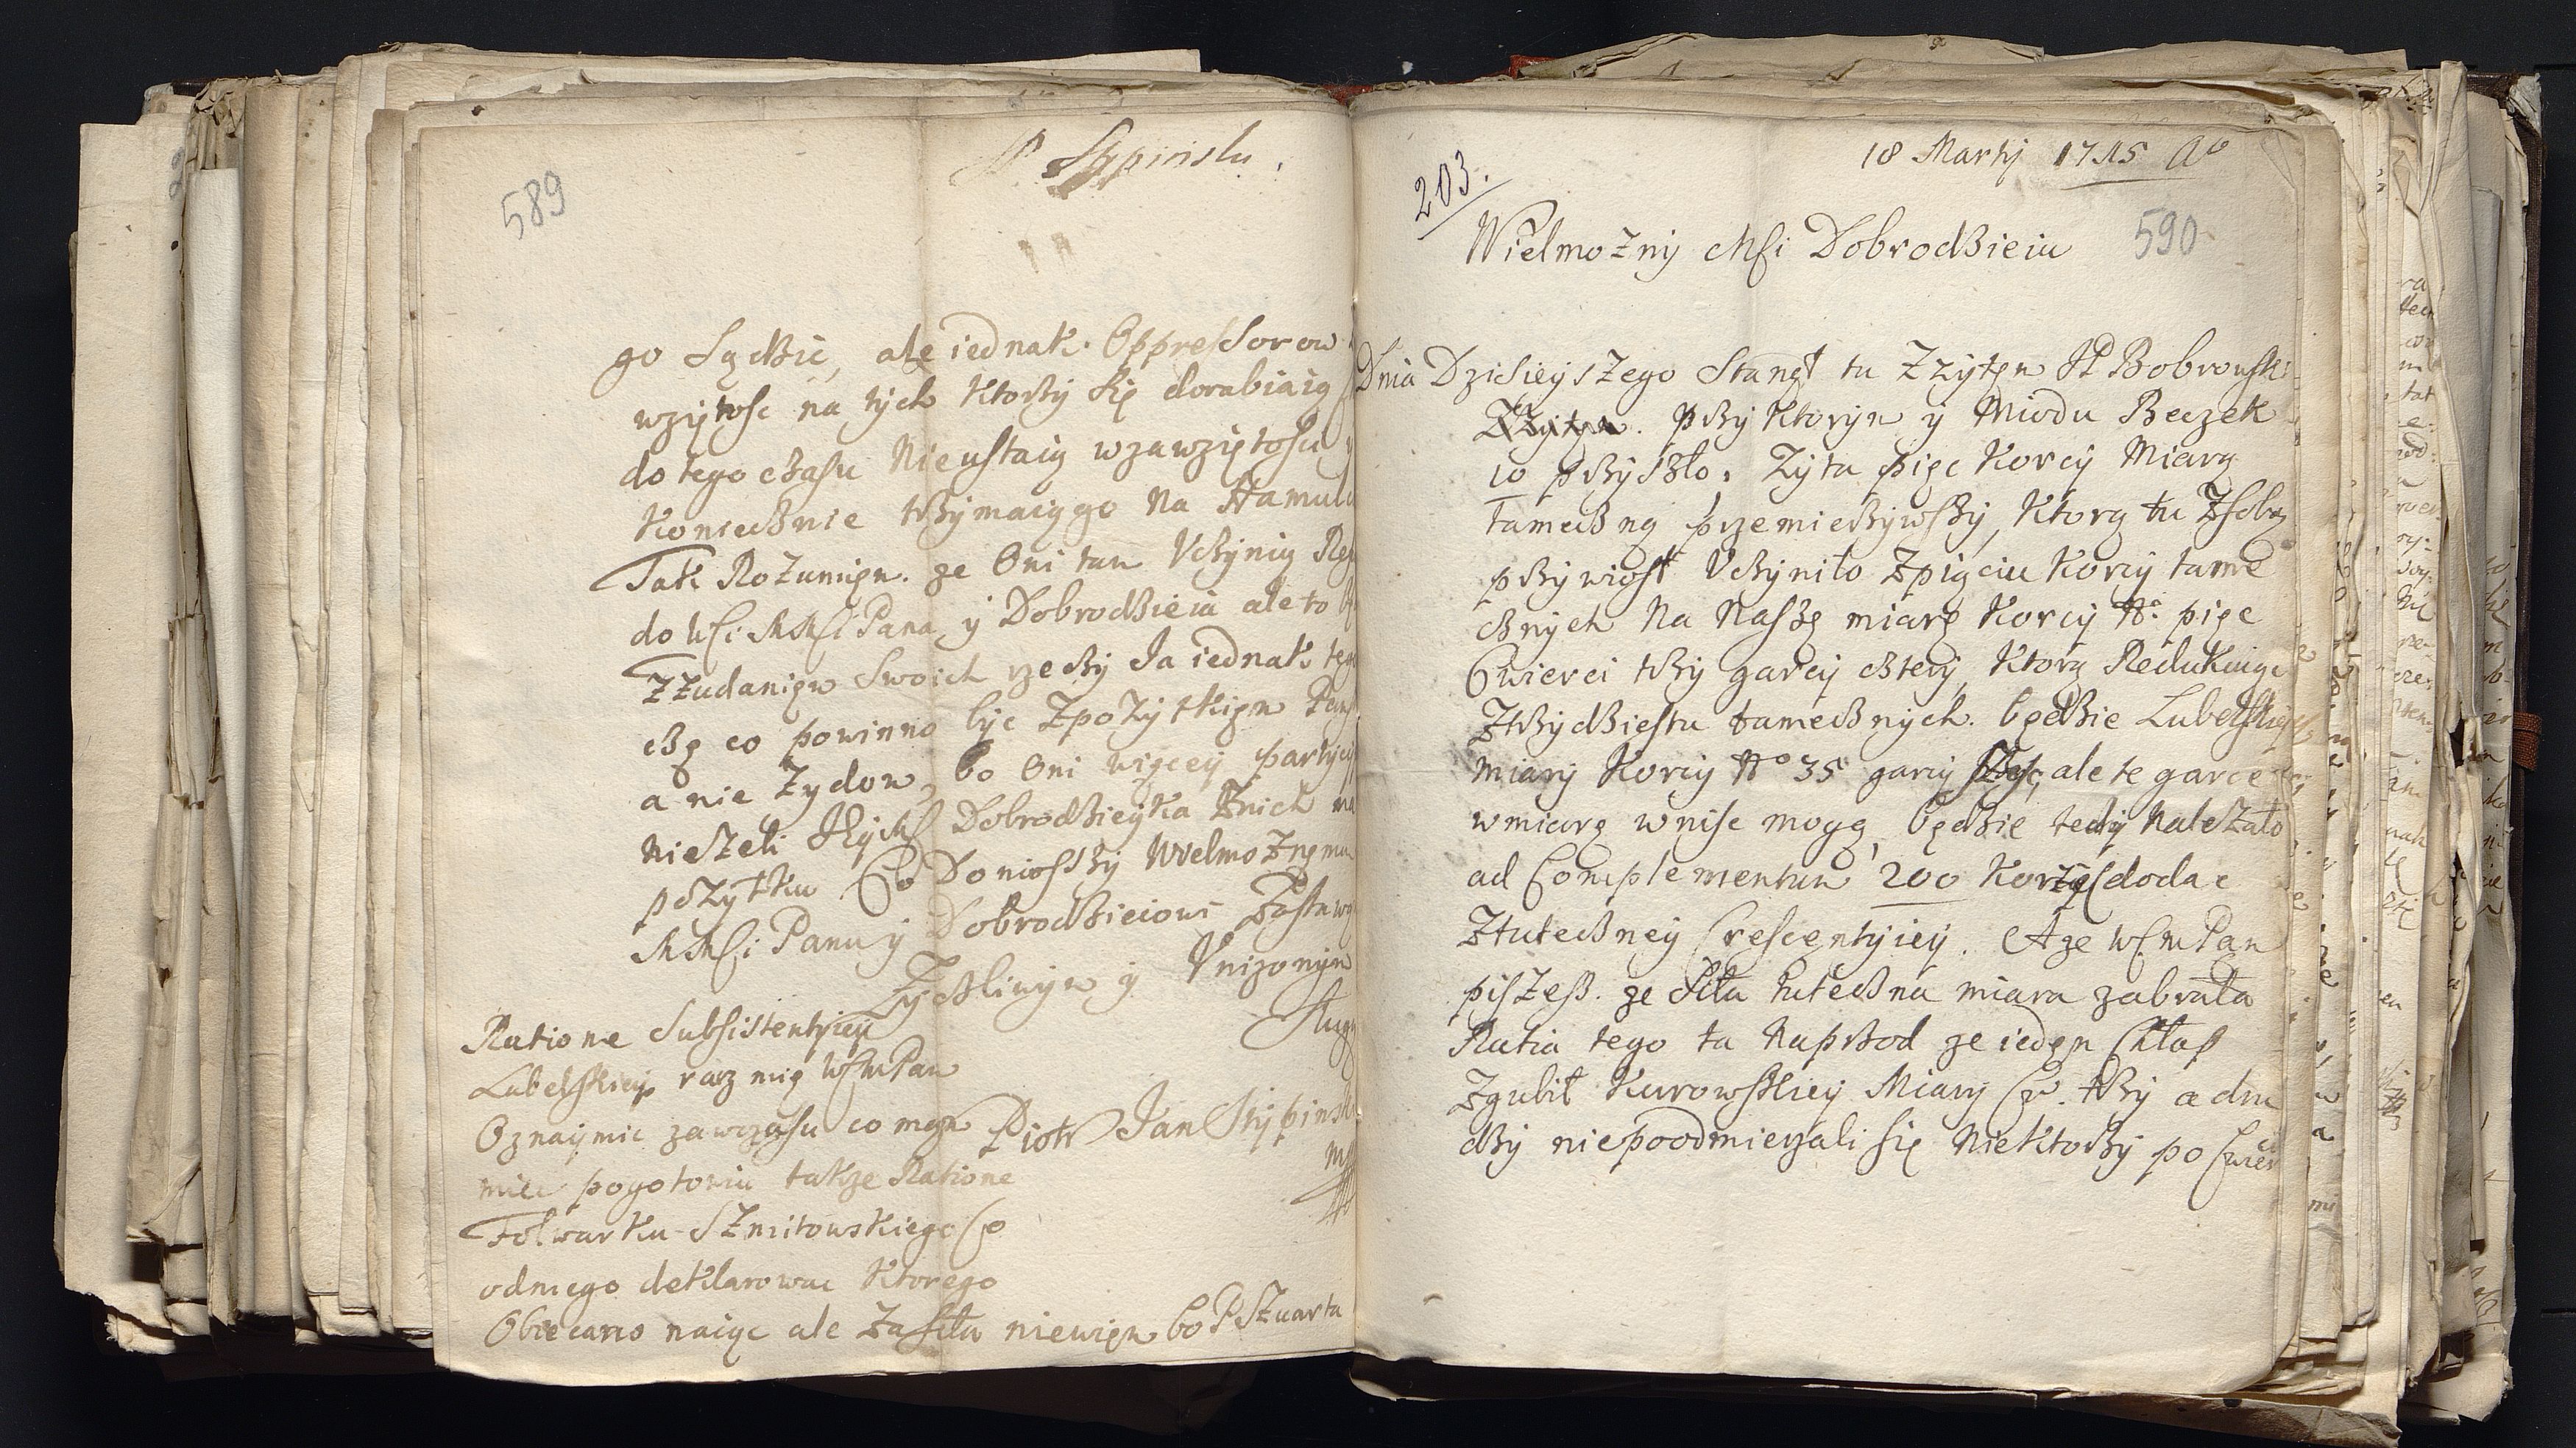 589
P Stypinsky
go Sądzić, ale iednak Oppressorow
wziętosc na tych ktorzy się dorabiaią
do tego czasu Nieustaią wzawziętosci y
Koniecznie trzymaią go Na Hamulcu
Tak Rozumięm. ze Oni tam Uczynią Re
do WMci MMści Pana y Dobrodzieia ale to
Z Zudaniem Swoich rzeczy Ja iednak
czę co powinno byc Zpożytkięm
a nie Zydow, bo Oni więcey
Niezeli Dobrodzieyka Znich
pozytku Co Doniosszy Wielmożnęmu
MMści Panu y Dobrodzieiowi
Zyczliwym y Uniżonym
Sługą
Ratione Subsistentyiey
Lubelskiey racz mię WMMPan
Oznaymic zawczasu co mąm
miec pogotowiu takze Ratione
Piotr Jan Stypinski
mp
Folwarku SZmitowskiego Co
odniego deklarowac Ktorego
Obiecano naiąc ale Zasiła niewięm bo P SZuarta
203.
18 Martij 1715 Ao
590
Wielmożny Mści Dobrodzieiu
Dnia Dzisieyszego Stanął tu Zżytęm JP Bobrowski
Zżytęm. przy Ktorym y Miodu Beczek
10 przyszło, Zyta pięc Korcy Miarą
tameczną przemierzywszy, Ktorą tu Zsobą
przywiosł Uczyniło Zpięciu Korcy tame
cznych Na Naszą miarę Korcy No. pięc
Cwierci trzy garcy cztery, Ktorą Redukuiąc
Ztrzydziestu tamecznych. będzie Lubelskiey
miary Korcy No 35 garcy ale te garce
wmiarę wnisc mogą, będzie tedy Należało
ad Complementum 200 Korzęs dodac
Ztuteczney Crescentyiey. A ze WMMPan
piszesz. ze Siła tuteczna miara zabrała
Ratia tego ta Naprzod ze ieden Chłop
Zgubił Kurowskiey Miary Cw. trzy a dru
dzy niepoodmierzali się Niektorzy po Cwier